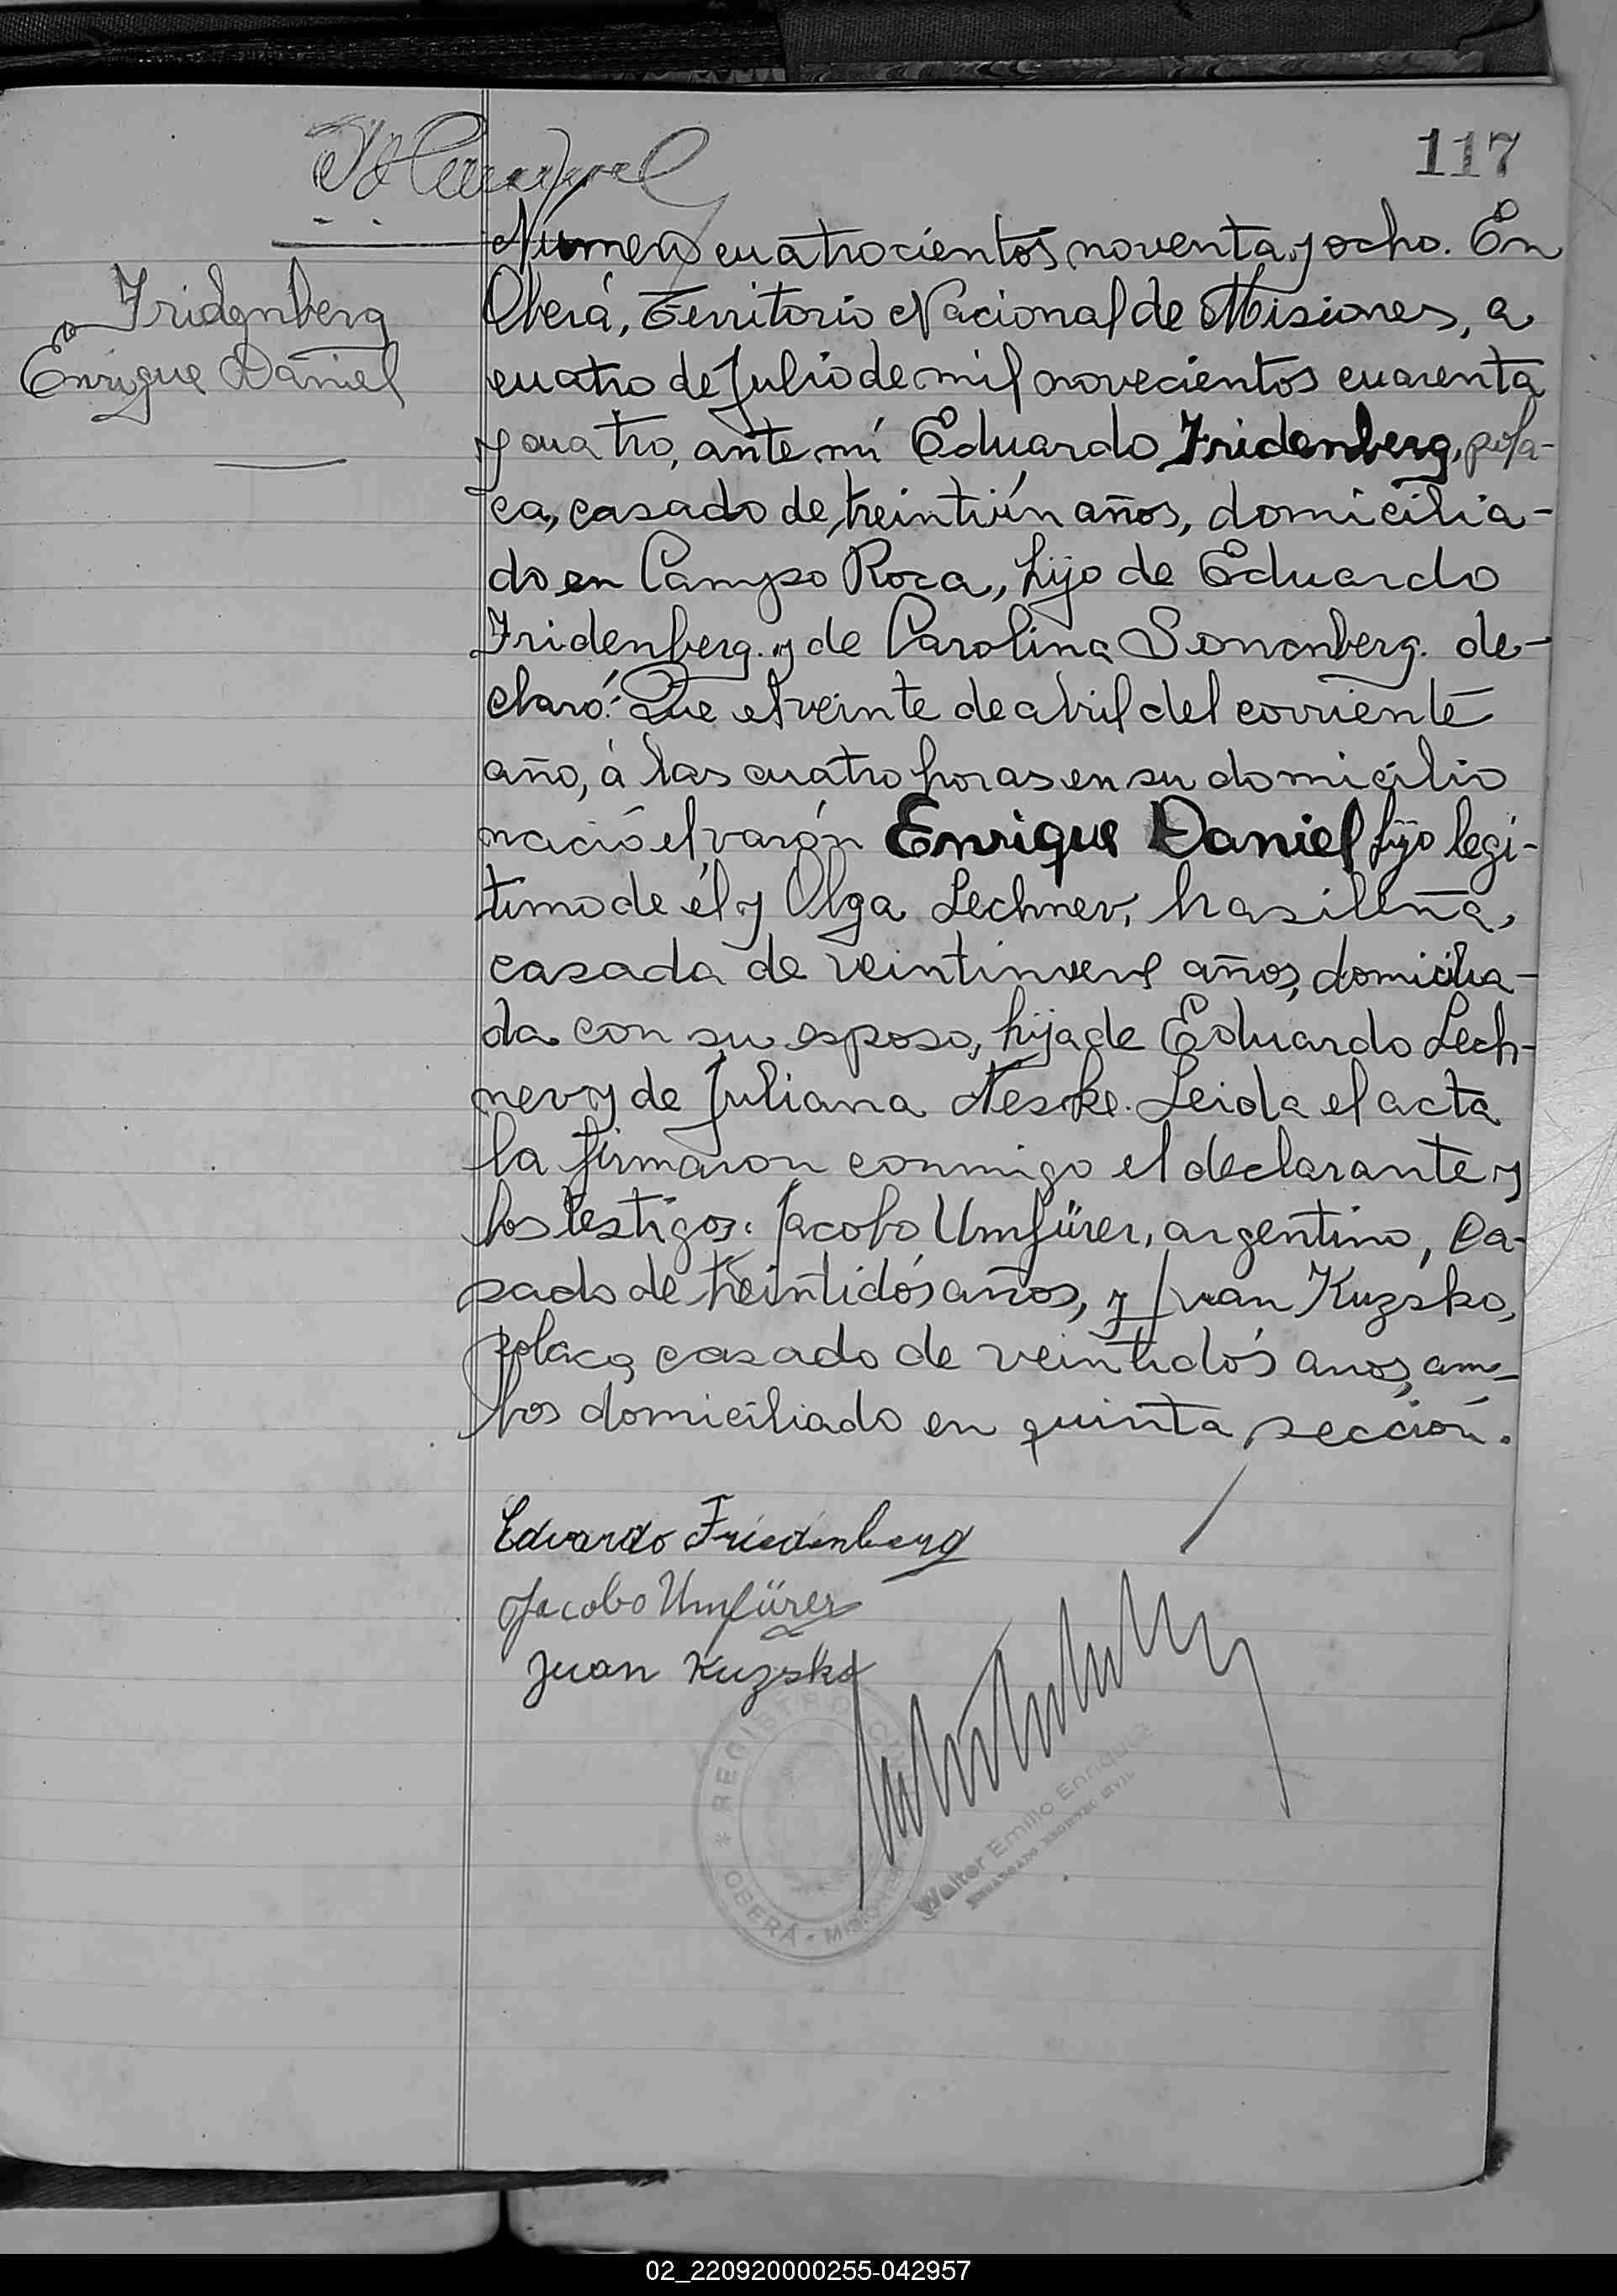 117
Número cuatrocientos noventa y ocho. En
Fridenberg
Enrique Daniel
Oberá, Territorio Nacional de Misiones, a
cuatro de Julio de mil novecientos cuarenta
y cuatro, ante mí Eduardo Fridenberg, pola-
ca, casado de treintiún años, domicilia-
do en Campo Roca, hijo de Eduardo
Fridenberg. y de Carolina Sonenberg. de-
claró: Que el veinte de abril del corriente
año, á las cuatro horas en su domicilio
nació el varón Enrique Daniel hijo legi-
timo de él y Olga Lechner, brasileña,
casada de veintinueve años, domicilia-
da con su esposo, hija de Eduardo Lech-
ner y de Juliana Neske. Leida el acta
la firmaron conmigo el declarante y
los testigos: Jacobo Umfürer, argentino, ca-
sado de treintidós años, y Juan Kuzsko,
polaco, casado de veintidós anos, am-
bos domiciliado en quinta sección.
Eduardo Friedenberg
Jacobo Umfürer
Juan Kuzsko
REGISTRO CIVIL
OBERÁ - Misiones
Walter Emilio Enriquez
ENCARGADO REGISTRO CIVIL
02_220920000255-042957